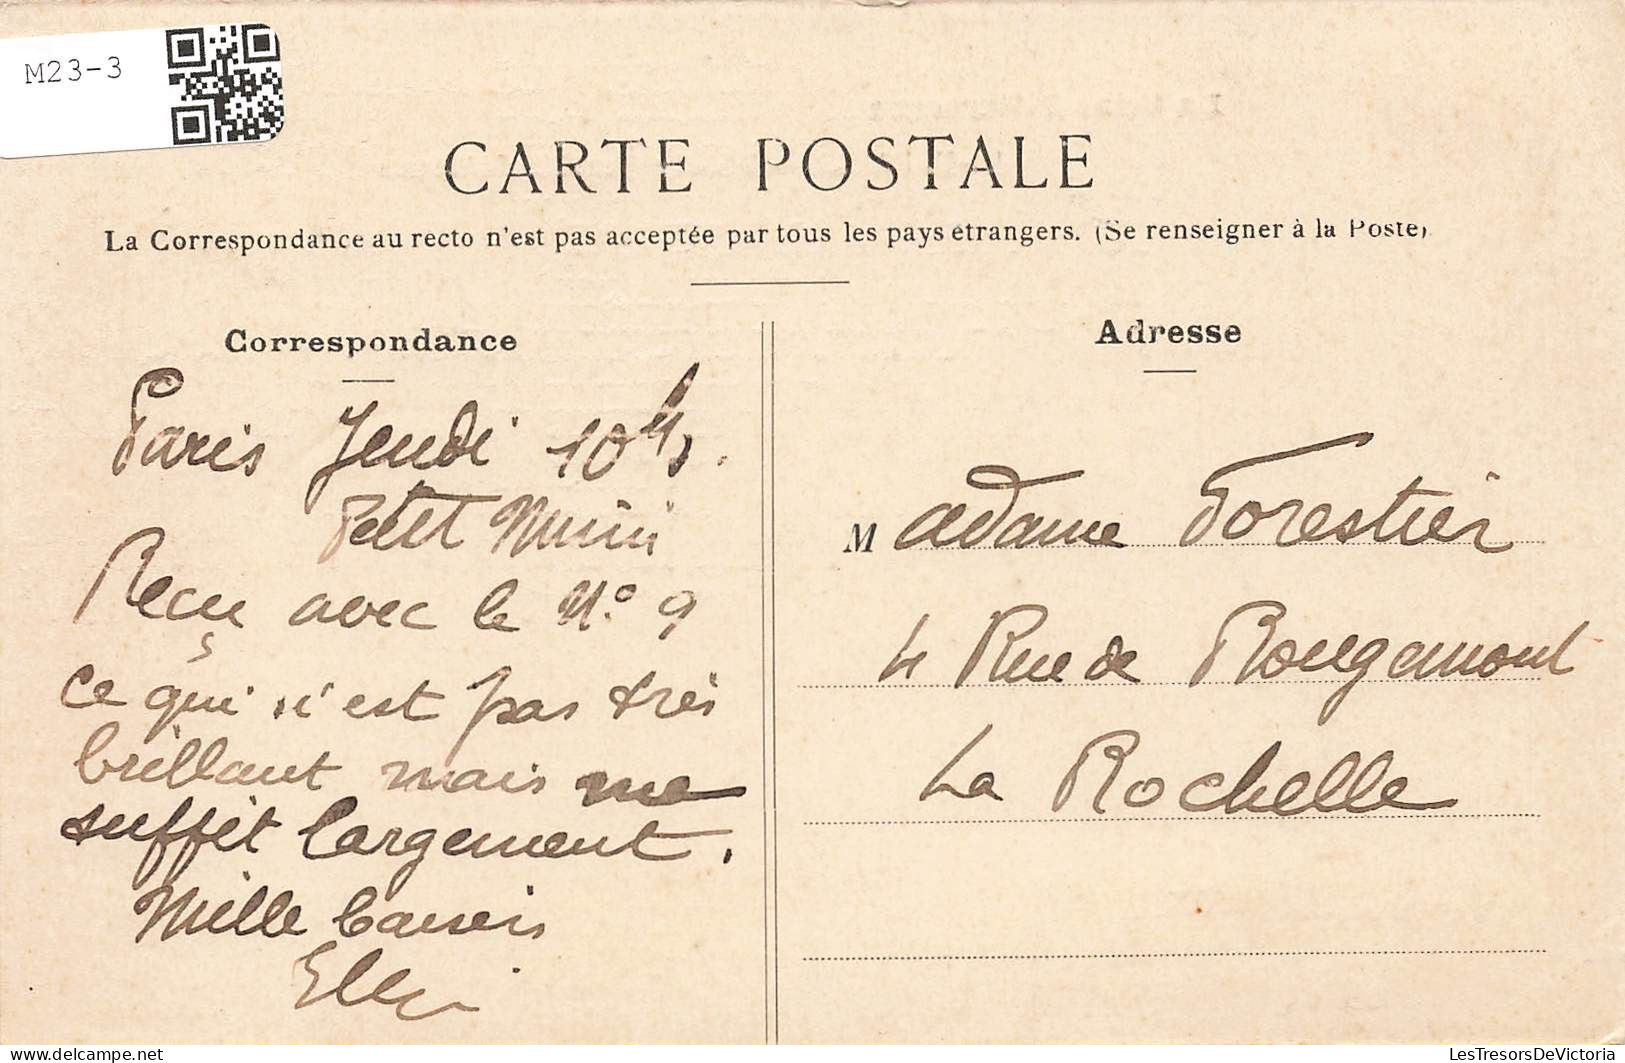 M23-3
CARTE POSTALE
La Correspondance au recto n'est pas acceptée par tous les pays etrangers. (Se renseigner à la Poste)
Correspondance
Paris Jeudi 10h
Petit Mimi
Reçu avec le N.º 9
ce qui n'est pas très
brillant mais me
suffit largement.
Mille baisers
Adresse
Madame Forestier
4 Rue de Rougemont
La Rochelle
delcampe.net
LesTresorsDeVictoria